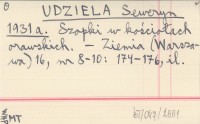 UDZIELA Seweryn
1931a. Szopki w kościołach
orawskich. – Ziemia (Warsza-
wa) 16, nr 8-10: 174-176, il.
MT